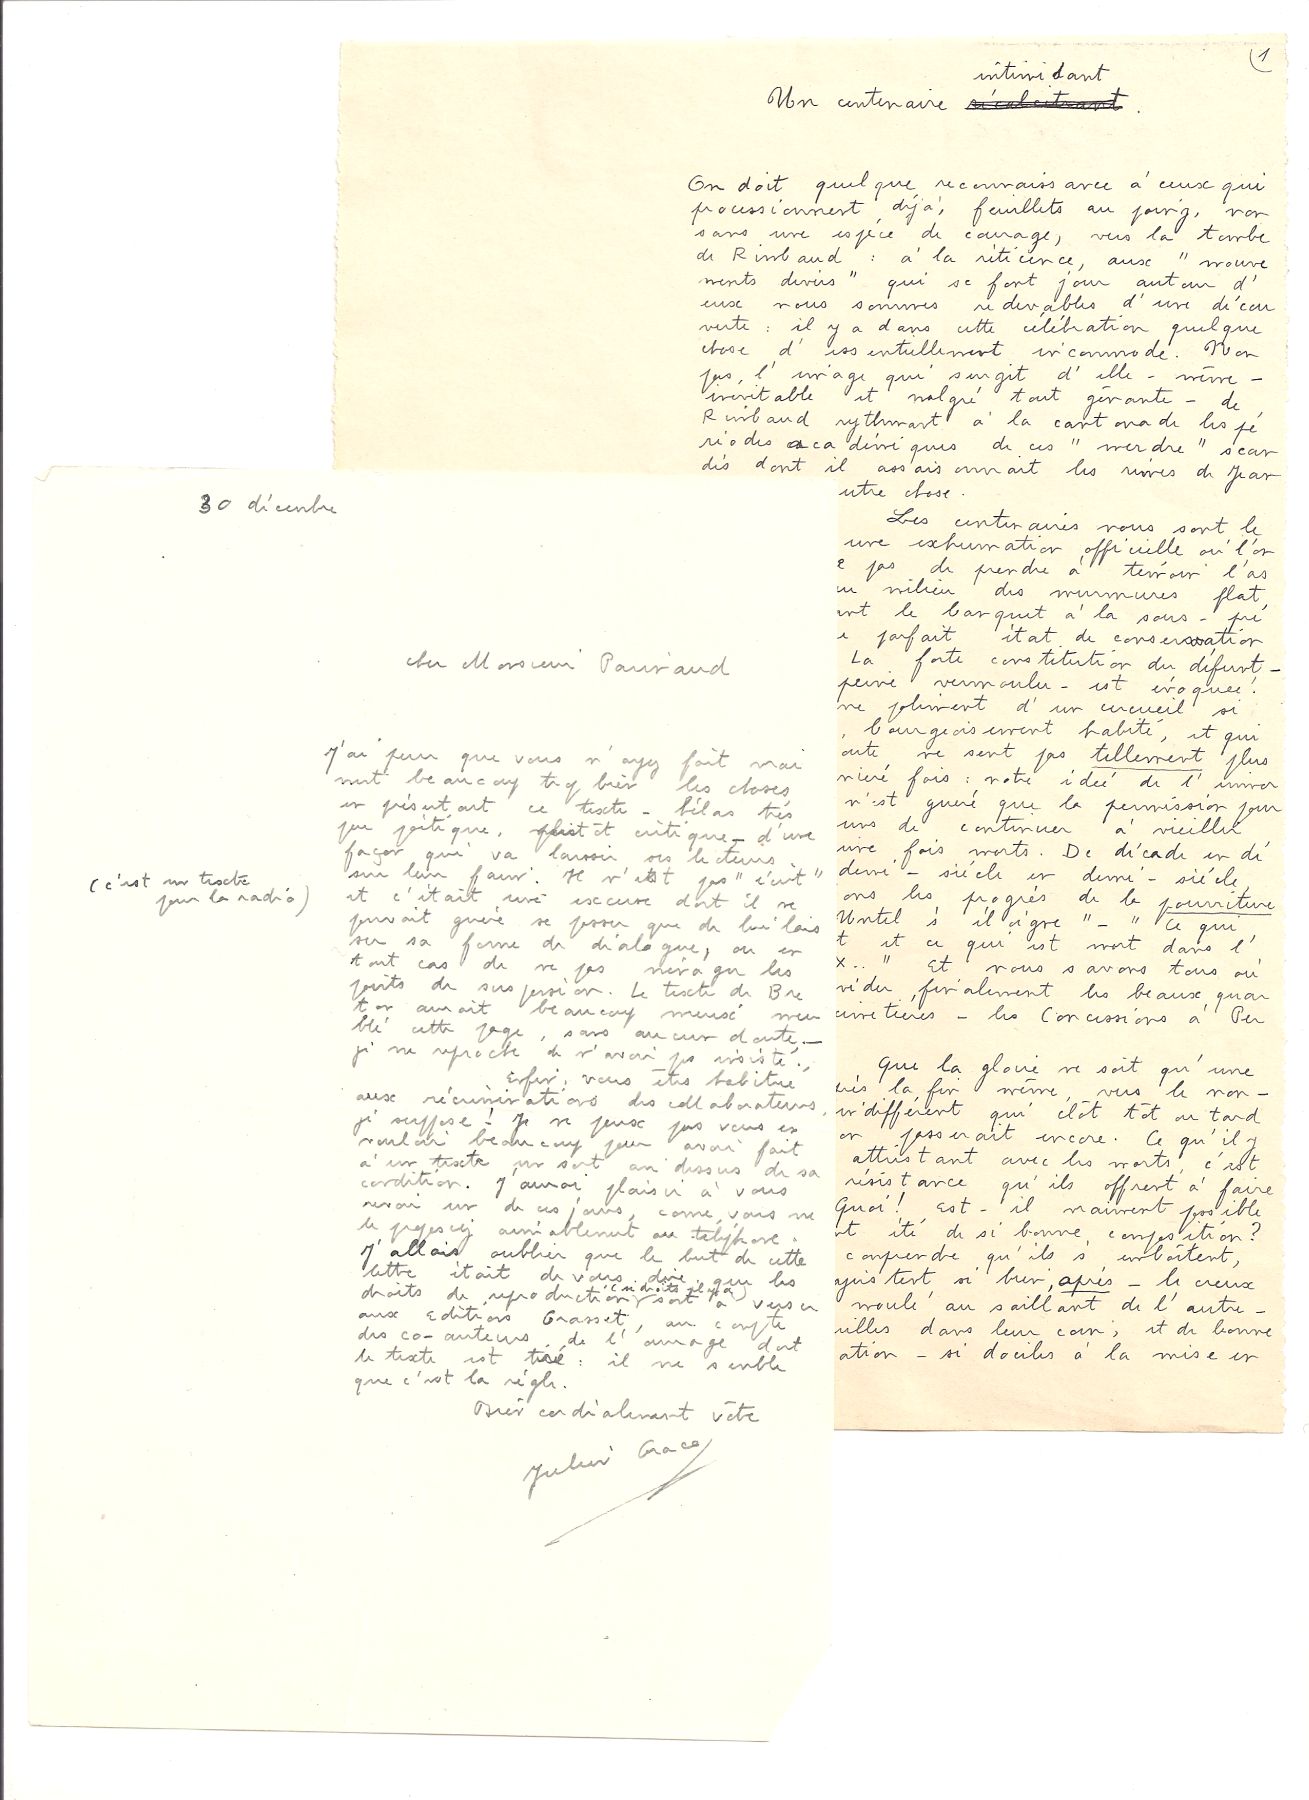 1
intimidant
Un centenaire récalcitrant.
On doit quelque reconnaissance à ceux qui
processionnent déjà, feuillets au poing, non
sans une espèce de courage, vers la tombe
de Rimbaud : à la réticence, aux " mouve
ments divers " qui se font jour autour d'
eux nous sommes redevables d'une décou
verte : il y a dans cette célébration quelque
chose d'essentiellement incommode. Non
pas l'image qui surgit d'elle-même -
inévitable et malgré tout gênante - de
Rimbaud rythmant à la cantonade les pé
riodes académiques de ces " merdre " scan
dés dont il assaisonnait les rimes de Jean
utre chose.
Les centenaires nous sont le
une exhumation officielle où l'on
e pas de prendre à témoin l'as
au milieu des murmures flat
ant le banquet à la sous-pré
e parfait état de conservation
La forte constitution du défunt -
peine vermoulu - est évoquée.
ne poliment d'un cercueil si
, bourgeoisement habité, et qui
oute ne sent pas tellement plus
nière fois : notre idée de l'immor
n'est guère que la permission pour
uns de continuer à vieillir
une fois morts. De décade en dé
demi-siècle en demi-siècle,
ons les progrès de la pourriture
Untel s'il aigre " - " Ce qui
t et ce qui est mort dans l'
x.. " Et nous savons tous où
vider, finalement les beaux quar
cimetières - les Concessions à Per
Que la gloire ne soit qu'une
rès la fin même, vers le non-
indifférent qui clôt tôt ou tard
on passerait encore. Ce qu'il y
attristant avec les morts, c'est
résistance qu'ils offrent à faire
Quoi ! Est-il vraiment possible
nt été de si bonne composition ?
comprendre qu'ils s'emboîtent,
ajustent si bien, après - le creux
moulé au saillant de l'autre -
uilles dans leur coin, et de bonne
ation - si dociles à la mise en
30 décembre
cher Monsieur Pauvaud
J'ai peur que vous n'ayez fait vrai
ment beaucoup trop bien les choses
en présentant ce texte - hélas très
peu poétique, plutôt critique - d'une
façon qui va laisser ses lecteurs
sur leur faim. Il n'est pas " écrit "
(c'est un texte
pour la radio)
et c'était une excuse dont il ne
pouvait guère se passer que de lui lais
ser sa forme de dialogue, ou en
tout cas de ne pas ménager les
points de suspension. Le texte de Bre
ton aurait beaucoup mieux meu
blé cette page, sans aucun doute, -
je me reproche de n'avoir pas insisté.
Enfin, vous êtes habitué
aux récriminations des collaborateurs,
je suppose ! Je ne peux pas vous en
vouloir beaucoup pour avoir fait
à un texte un sort au dessus de sa
condition. J'aurai plaisir à vous
revoir un de ces jours, comme vous me
le proposiez aimablement au téléphone.
J'allais oublier que le but de cette
lettre était de vous dire que les
droits de reproduction (si droits il y a) sont à verser
aux Editions Grasset, au compte
des co-auteurs de l'ouvrage dont
le texte est tiré : il me semble
que c'est la règle.
Bien cordialement vôtre
Julien Gracq